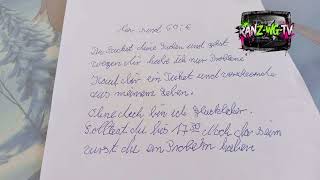 RANZ-WG-TV
hier sind 60,- €
Du Packst deine Sachen und gehst
wegen dir habe ich nur Probleme
Kauf dir ein Ticket und verschwinde
aus meinem Leben.
Ohne dich bin ich glücklicher.
Solltest du bis 17 00 Noch da sein
wirst du ein Problem haben